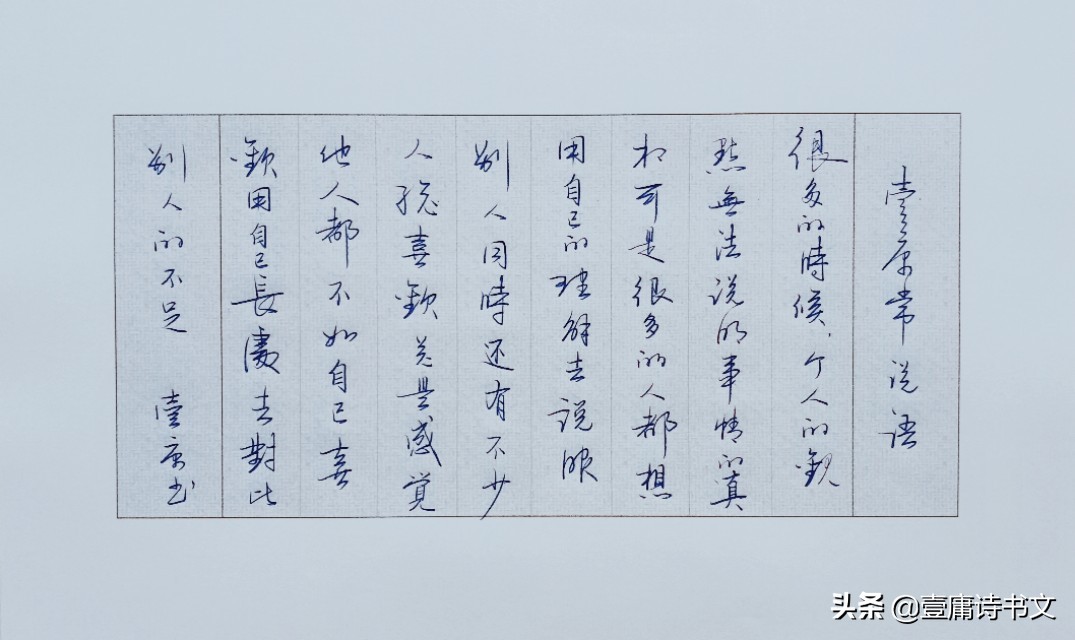 壹庸常说语
很多的時候，个人的觀
點無法说明事情的真
相可是很多的人都想
用自己的理解去説服
别人同時还有不少
人總喜歡总是感覚
他人都不如自己喜
歡用自己長處去對比
别人的不足 壹庸书
头条 @壹庸诗书文